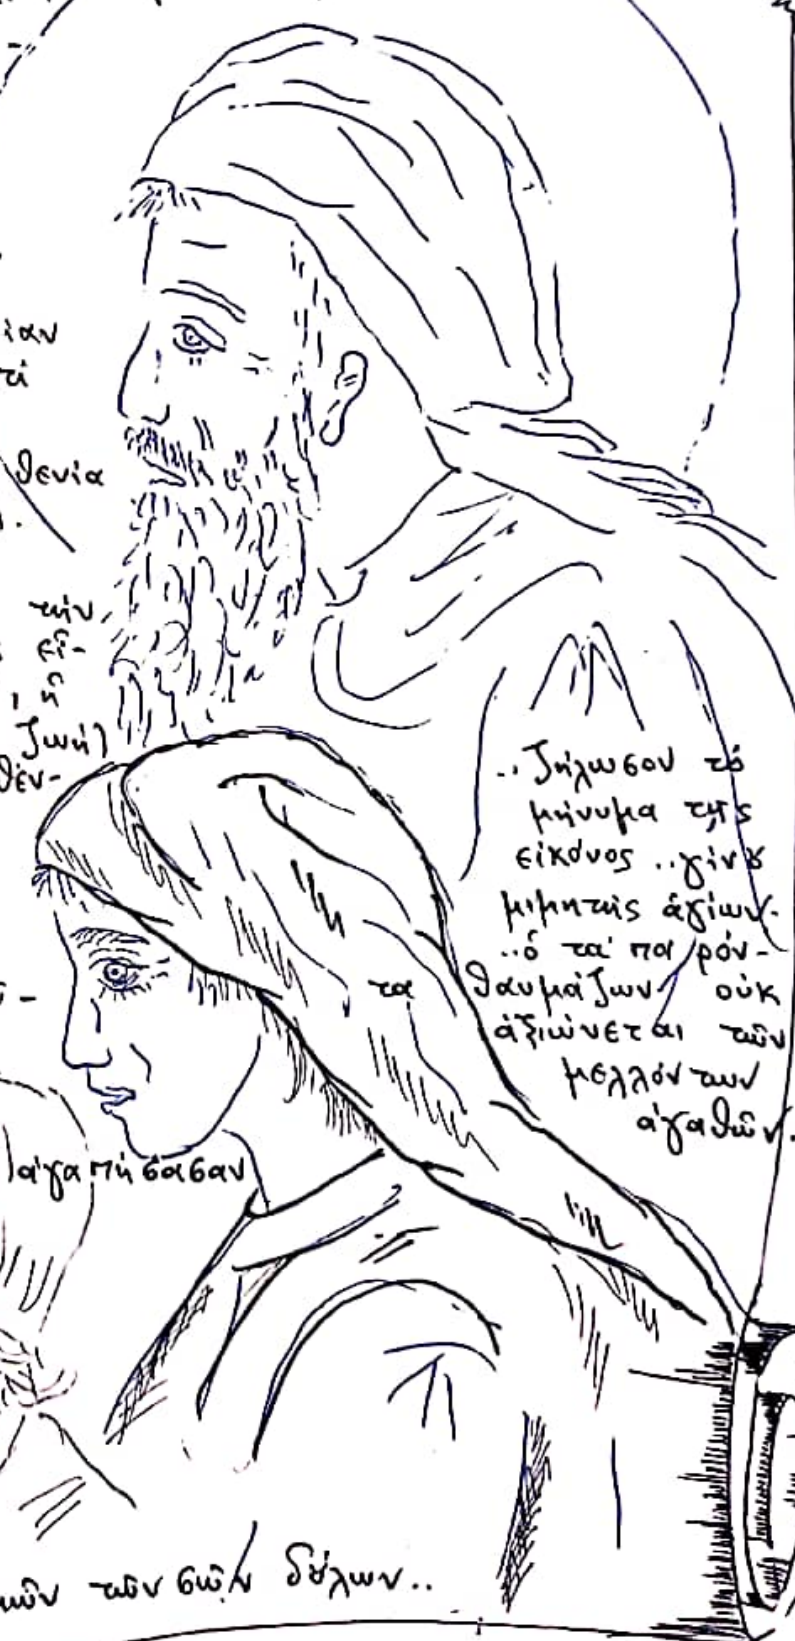 ίαν
τί
θενία
τήν
εἰ-
ἡ
ζωή)
θέν-
..ζήλωσον τό
μήνυμα τῆς
εἰκόνος ..γίνȣ
μιμητής ἁγίων.
..ὁ τά παρόν-
τα θαυμάζων οὐκ
ἀξιώνεται τῶν
μελλόντων
ἀγαθῶν.
ἀγαπήσασαν
τῶν σῶν δȣ́λων..